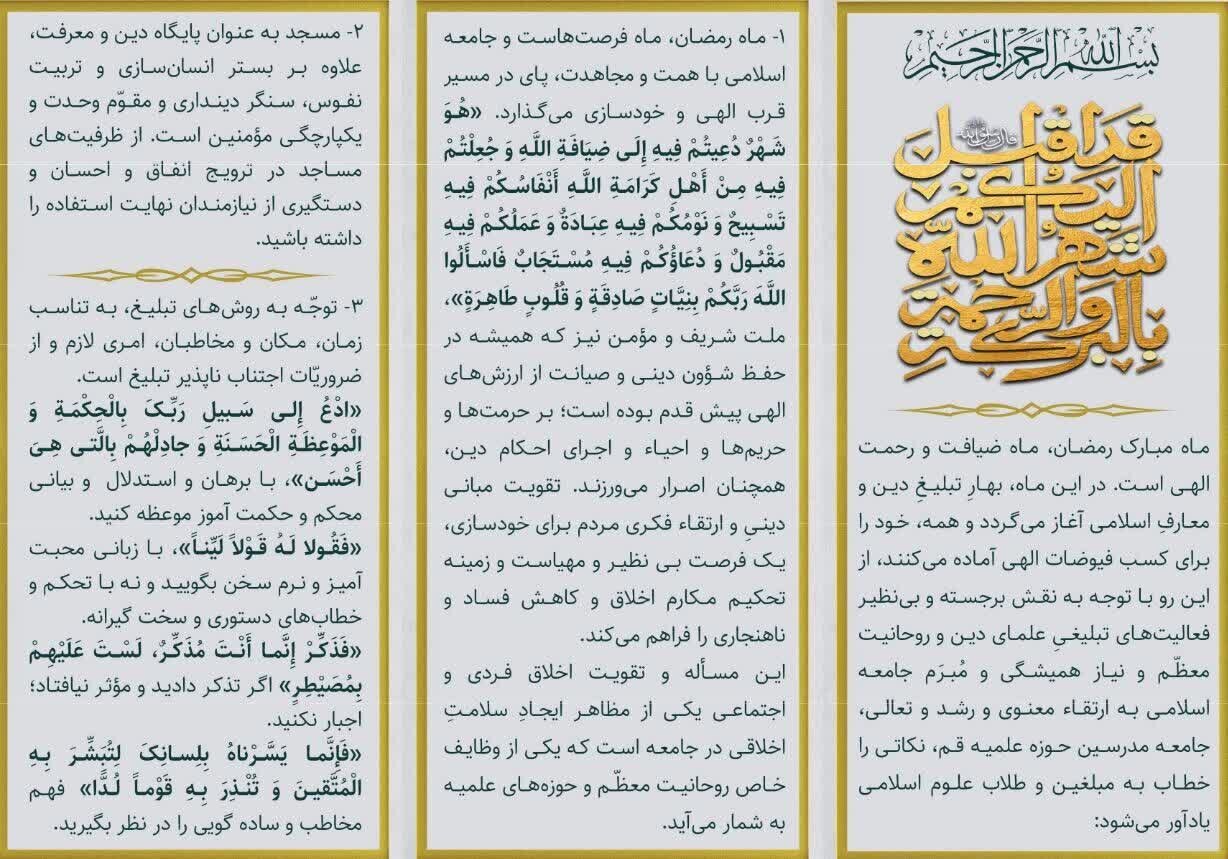 بسم الله الرحمن الرحیم
قال رسول الله ﷺ
قد اقبل
الیکم
شهر الله
بالبرکة والرحمة
ماه مبارک رمضان، ماه ضیافت و رحمت
الهی است. در این ماه، بهارِ تبلیغِ دین و
معارفِ اسلامی آغاز می‌گردد و همه، خود را
برای کسب فیوضات الهی آماده می‌کنند، از
این رو با توجه به نقش برجسته و بی‌نظیر
فعالیت‌های تبلیغیِ علمای دین و روحانیت
معظّم و نیاز همیشگی و مُبرَم جامعه
اسلامی به ارتقاء معنوی و رشد و تعالی،
جامعه مدرسین حوزه علمیه قم، نکاتی را
خطاب به مبلغین و طلاب علوم اسلامی
یادآور می‌شود:
۱- ماه رمضان، ماه فرصت‌هاست و جامعه
اسلامی با همت و مجاهدت، پای در مسیر
قرب الهی و خودسازی می‌گذارد. «هُوَ
شَهْرٌ دُعِیتُمْ فِیهِ إِلَی ضِیَافَةِ اللَّهِ وَ جُعِلْتُمْ
فِیهِ مِنْ أَهْلِ کَرَامَةِ اللَّهِ أَنْفَاسُکُمْ فِیهِ
تَسْبِیحٌ وَ نَوْمُکُمْ فِیهِ عِبَادَةٌ وَ عَمَلُکُمْ فِیهِ
مَقْبُولٌ وَ دُعَاؤُکُمْ فِیهِ مُسْتَجَابٌ فَاسْأَلُوا
اللَّهَ رَبَّکُمْ بِنِیَّاتٍ صَادِقَةٍ وَ قُلُوبٍ طَاهِرَةٍ»،
ملت شریف و مؤمن نیز که همیشه در
حفظ شؤون دینی و صیانت از ارزش‌های
الهی پیش قدم بوده است؛ بر حرمت‌ها و
حریم‌ها و احیاء و اجرای احکام دین،
همچنان اصرار می‌ورزند. تقویت مبانی
دینیِ و ارتقاء فکری مردم برای خودسازی،
یک فرصت بی نظیر و مهیاست و زمینه
تحکیم مکارم اخلاق و کاهش فساد و
ناهنجاری را فراهم می‌کند.
این مسأله و تقویت اخلاق فردی و
اجتماعی یکی از مظاهر ایجادِ سلامتِ
اخلاقی در جامعه است که یکی از وظایف
خاص روحانیت معظّم و حوزه‌های علمیه
به شمار می‌آید.
۲- مسجد به عنوان پایگاه دین و معرفت،
علاوه بر بستر انسان‌سازی و تربیت
نفوس، سنگر دینداری و مقوّم وحدت و
یکپارچگی مؤمنین است. از ظرفیت‌های
مساجد در ترویج انفاق و احسان و
دستگیری از نیازمندان نهایت استفاده را
داشته باشید.
۳- توجّه به روش‌های تبلیغ، به تناسب
زمان، مکان و مخاطبان، امری لازم و از
ضروریّات اجتناب ناپذیر تبلیغ است.
«ادْعُ إِلی سَبیلِ رَبِّکَ بِالْحِکْمَةِ وَ
الْمَوْعِظَةِ الْحَسَنَةِ وَ جادِلْهُمْ بِالَّتی هِیَ
أَحْسَن»، با برهان و استدلال و بیانی
محکم و حکمت آموز موعظه کنید.
«فَقُولا لَهُ قَوْلاً لَیِّناً»، با زبانی محبت
آمیز و نرم سخن بگویید و نه با تحکم و
خطاب‌های دستوری و سخت گیرانه.
«فَذَکِّرْ إِنَّما أَنْتَ مُذَکِّرٌ، لَسْتَ عَلَیْهِمْ
بِمُصَیْطِرٍ» اگر تذکر دادید و مؤثر نیافتاد؛
اجبار نکنید.
«فَإِنَّما یَسَّرْناهُ بِلِسانِکَ لِتُبَشِّرَ بِهِ
الْمُتَّقینَ وَ تُنْذِرَ بِهِ قَوْماً لُدًّا» فهم
مخاطب و ساده گویی را در نظر بگیرید.